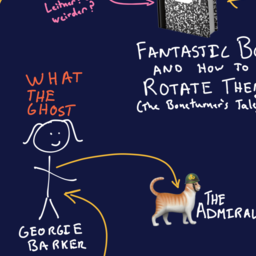 Leitner?
weirder?
FANTASTIC BO
AND HOW TO
ROTATE THE
(The Boneturner's Tale
WHAT
THE
GHOST
THE
ADMIRAL
GEORGIE
BARKER